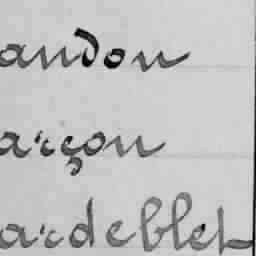 andon
arçon
ardeblet